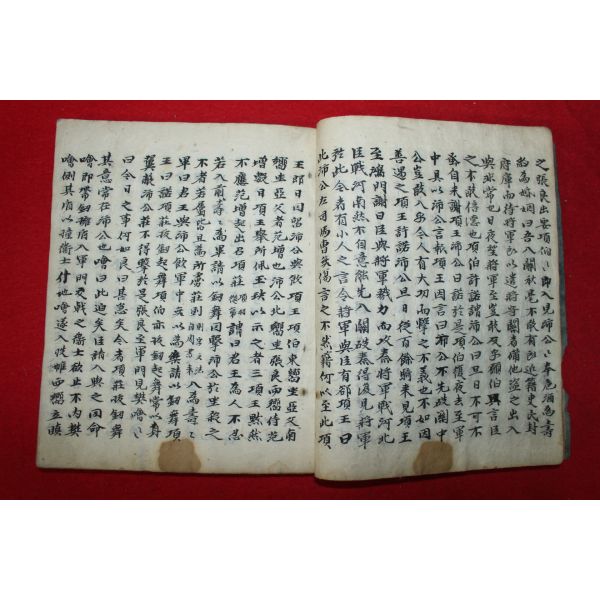 之張良出要項伯〻即入見沛公〻奉卮酒為壽
約為婚姻曰吾入關秋毫不敢有所近籍吏民封
府庫而待將軍所以遣將守關者備他盜之出入
與非常也日夜望將軍至豈敢反乎願伯具言臣
之不敢倍德也項伯許諾謂沛公曰旦日不可不
蚤自來謝項王沛公曰諾於是項伯復夜去至軍
中具以沛公言報項王因言曰沛公不先破關中
公豈敢入乎今人有大功而擊之不義也不如因
善遇之項王許諾沛公旦日從百餘騎來見項王
至鴻門謝曰臣與將軍戮力而攻秦將軍戰河北
臣戰河南然不自意能先入關破秦得復見將軍
於此今者有小人之言令將軍與臣有郤項王曰
此沛公左司馬曹無傷言之不然籍何以至此項
王即日因留沛公與飲項王項伯東嚮坐亞父南
嚮坐亞父者范增也沛公北嚮坐張良西嚮侍范
增數目項王舉所佩玉玦以示之者三項王默然
不應范增起出召項莊謂曰君王為人不忍
若入前為壽〻畢請以劒舞因擊沛公於坐殺之
不者若屬皆且為所虜莊則入為壽〻
軍曰君王與沛公飲軍中無以為樂請以劒舞項
王曰諾項莊拔劒起舞項伯亦拔劒起舞常以身
翼蔽沛公莊不得擊於是張良至軍門見樊噲〻
曰今日之事何如良曰甚急矣今者項莊拔劒舞
其意常在沛公也噲曰此迫矣臣請入與之同命
噲即帶劒擁盾入軍門交戟之衛士欲止不內樊
噲側其盾以撞衛士仆地噲遂入披帷西嚮立瞋